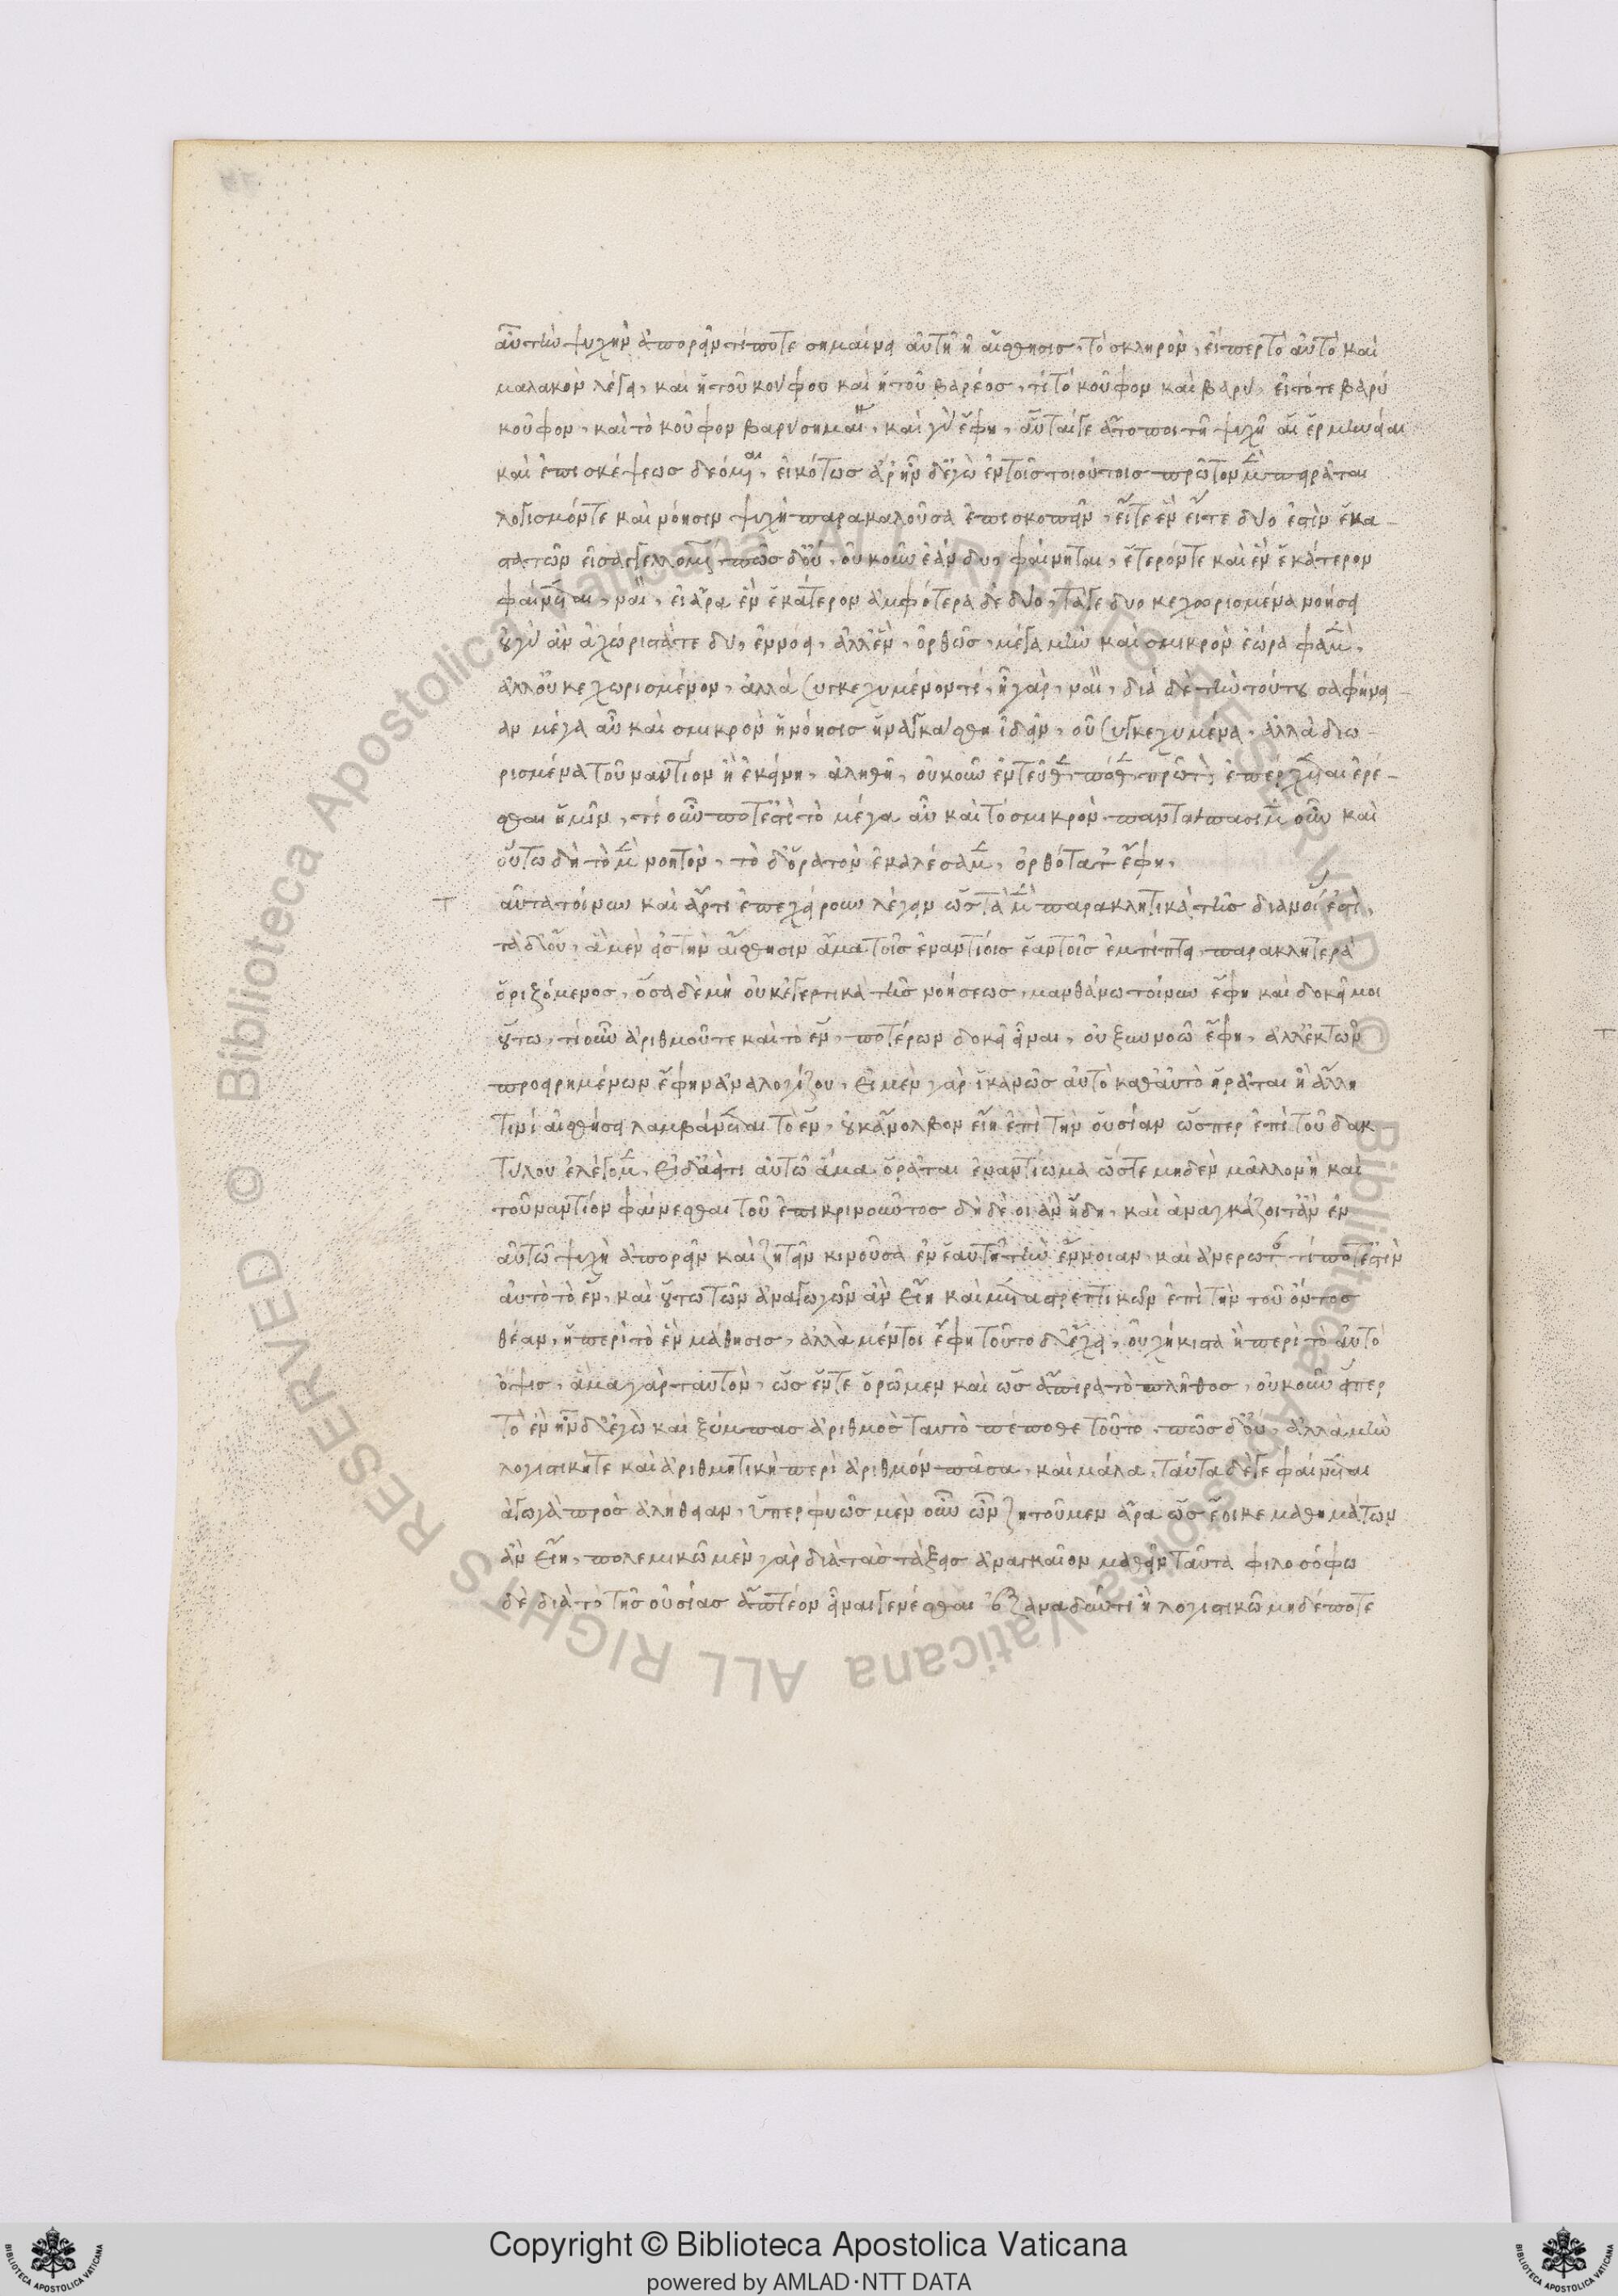 αὖ τὴν ψυχὴν ἀπορεῖν τί ποτε σημαίνει αὐτῆ ἡ αἴσθησις, τὸ σκληρὸν, εἴπερ τὸ αὐτὸ καὶ
μαλακὸν λέγει, καὶ ἡ τοῦ κούφου καὶ ἡ τοῦ βαρέος, τί τὸ κοῦφον καὶ βαρύ, εἰ τό τε βαρύ
κοῦφον, καὶ τὸ κοῦφον βαρὺ σημαίνει, καὶ γὰρ ἔφη, αὗταί γε ἄτοποι τῆ ψυχῆ αἱ ἑρμηνεῖαι
καὶ ἐπισκέψεως δεόμεναι, εἰκότως ἄρ' ἦν δ' ἐγὼ ἐν τοῖς τοιούτοις πρῶτον μὲν πειρᾶται
λογισμόν τε καὶ νόησιν ψυχὴ παρακαλοῦσα ἐπισκοπεῖν, εἴτε ἓν εἴτε δύο ἐστὶν ἕκα-
στα τῶν εἰσαγγελλομένων, πῶς δ' οὔ, οὐκοῦν ἐὰν δύο φαίνηται, ἕτερόν τε καὶ ἓν ἑκάτερον
φαίνεται, ναί, εἰ ἄρα ἓν ἑκάτερον ἀμφότερα δὲ δύο, τά γε δύο κεχωρισμένα νοήσει
οὐ γὰρ ἂν ἀχώριστά γε δύο ἐνόει, ἀλλ' ἕν, ὀρθῶς, μέγα μὴν καὶ σμικρὸν ἑώρα φαμὲν,
ἀλλ' οὐ κεχωρισμένον, ἀλλὰ συγκεχυμένον τί, ἦ γάρ, ναί, διὰ δὲ τὴν τούτου σαφήνει-
αν μέγα αὖ καὶ σμικρὸν ἡ νόησις ἠναγκάσθη ἰδεῖν, οὐ συγκεχυμένα, ἀλλὰ διω-
ρισμένα τοὐναντίον ἢ ἐκείνη, ἀληθῆ, οὐκοῦν ἐντεῦθεν ποθὲν πρῶτον ἐπέρχεται ἐρέ-
σθαι ἡμῖν, τί οὖν ποτ' ἐστὶ τὸ μέγα αὖ καὶ τὸ σμικρόν παντάπασι μὲν οὖν καὶ
οὕτω δὴ τὸ μὲν νοητὸν, τὸ δ' ὁρατὸν ἐκαλέσαμεν, ὀρθότατ' ἔφη,
ταῦτα τοίνυν καὶ ἄρτι ἐπεχείρουν λέγειν ὡς τὰ μὲν παρακλητικὰ τῆς διανοίας ἐστὶ,
τὰ δ' οὔ, ἃ μὲν εἰς τὴν αἴσθησιν ἅμα τοῖς ἐναντίοις ἑαυτοῖς ἐμπίπτει, παρακλητικὰ
ὁριζόμενος, ὅσα δὲ μὴ οὐκ ἐγερτικὰ τῆς νοήσεως, μανθάνω τοίνυν ἔφη καὶ δοκεῖ μοι
οὕτω, τί οὖν ἀριθμός τε καὶ τὸ ἓν, ποτέρων δοκεῖ εἶναι, οὐ ξυννοῶ ἔφη, ἀλλ' ἐκ τῶν
προειρημένων ἔφην ἀναλογίζου, εἰ μὲν γὰρ ἱκανῶς αὐτὸ καθ' αὑτὸ ὁρᾶται ἢ ἄλλη
τινὶ αἰσθήσει λαμβάνεται τὸ ἓν, οὐκ ἂν ὁλκὸν εἴη ἐπὶ τὴν οὐσίαν ὥσπερ ἐπὶ τοῦ δακ
τύλου ἐλέγομεν, εἰ δ' ἀεί τι αὐτῷ ἅμα ὁρᾶται ἐναντίωμα ὥστε μηδὲν μᾶλλον ἓν ἢ καὶ
τοὐναντίον φαίνεσθαι τοῦ ἐπικρινοῦντος δὴ δέοι ἂν ἤδη, καὶ ἀναγκάζοιτ' ἂν ἐν
αὐτῷ ψυχὴ ἀπορεῖν καὶ ζητεῖν κινοῦσα ἐν ἑαυτῇ τὴν ἔννοιαν, καὶ ἀνερωτᾶν τί ποτ' ἐστὶν
αὐτὸ τὸ ἓν, καὶ οὕτω τῶν ἀγωγῶν ἂν εἴη καὶ μεταστρεπτικῶν ἐπὶ τὴν τοῦ ὄντος
θέαν, ἡ περὶ τὸ ἓν μάθησις, ἀλλὰ μέντοι ἔφη τοῦτό γ' ἔχει, οὐχ ἥκιστα ἡ περὶ τὸ αὐτὸ
ὄψις, ἅμα γὰρ ταὐτὸν, ὡς ἕν τε ὁρῶμεν καὶ ὡς ἄπειρα τὸ πλῆθος, οὐκοῦν εἴπερ
τὸ ἓν ἦν δ' ἐγὼ καὶ ξύμπας ἀριθμὸς ταὐτὸ πέπονθε τοῦτο, πῶς δ' οὔ, ἀλλὰ μὴν
λογιστική τε καὶ ἀριθμητικὴ περὶ ἀριθμόν πᾶσα, καὶ μάλα, ταῦτα δέ γε φαίνεται
ἀγωγὰ πρὸς ἀλήθειαν, ὑπερφυῶς μὲν οὖν ὧν ζητοῦμεν ἄρα ὡς ἔοικε μαθημάτων
ἂν εἴη, πολεμικῷ μὲν γὰρ διὰ τὰς τάξεις ἀναγκαῖον μαθεῖν ταῦτα φιλοσόφω
δὲ διὰ τὸ τῆς οὐσίας ἁπτέον εἶναι γενέσεως ἐξαναδύντι ἢ λογιστικῷ μηδέποτε